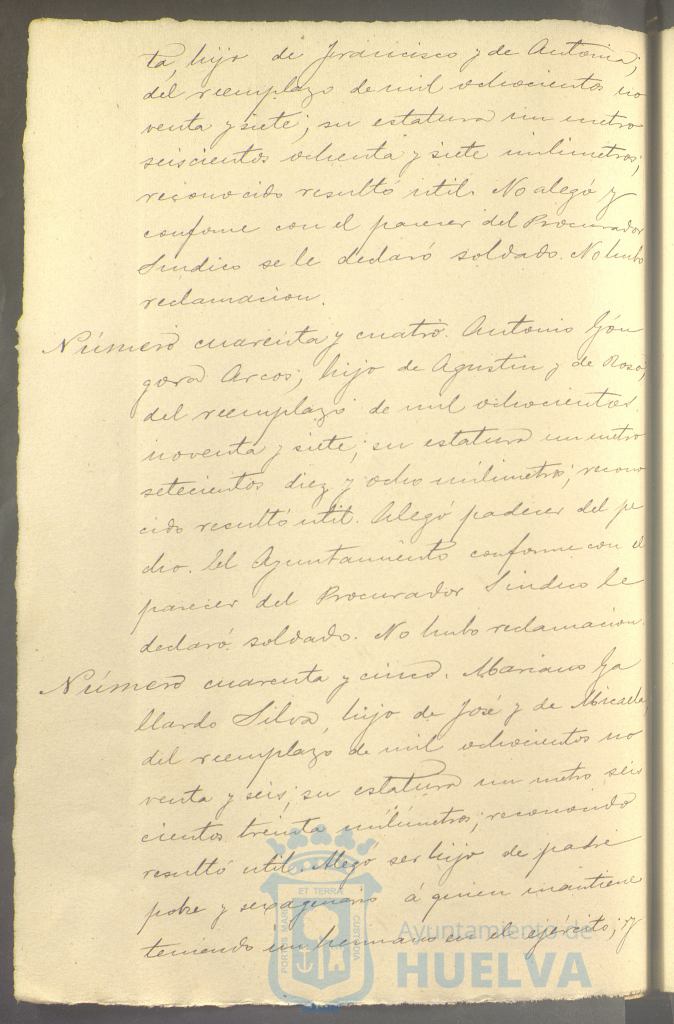 ta, hijo de Francisco y de Antonia;
del reemplazo de mil ochocientos no
venta y siete; su estatura un metro
seiscientos ochenta y siete milimetros;
reconocido resultó util. No alegó y
conforme con el parecer del Procurador
Sindico se le declaró soldado. No hubo
reclamacion.
Número cuarenta y cuatro. Antonio Gón
gora Arcos, hijo de Agustin y de Rosa,
del reemplazo de mil ochocientos
noventa y siete; su estatura un metro
setecientos diez y ocho milimetros; recono
cido resultó util. Alegó padecer del pe
cho. El Ayuntamiento conforme con el
parecer del Procurador Sindico le
declaró soldado. No hubo reclamacion.
Número cuarenta y cinco. Mariano Ga
llardo Silva, hijo de José y de Micaela,
del reemplazo de mil ochocientos no
venta y seis; su estatura un metro seis
cientos treinta milimetros; reconocido
resultó util. Alegó ser hijo de padre
pobre y sexagenario á quien mantiene
teniendo un hermano en el ejército; y
ET TERRÆ
PORTUS MARIS
CUSTODIA
Ayuntamiento de
HUELVA